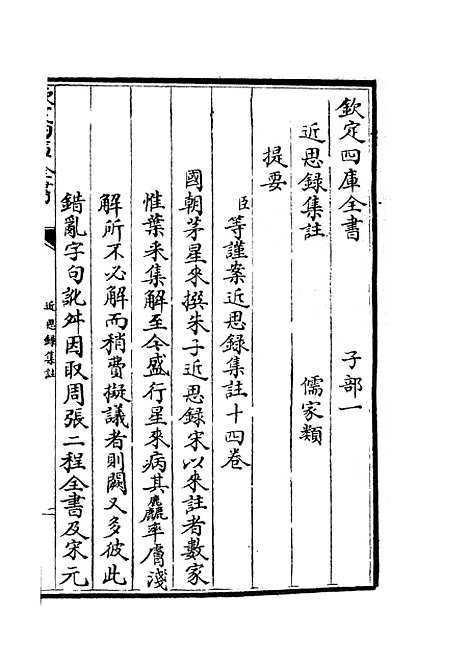 欽定四庫全書　子部一
近思録集註　儒家類
提要
臣等謹案近思録集註十四卷
國朝茅星來撰朱子近思録宋以來註者數家
惟葉采集解至今盛行星來病其麤率膚淺
解所不必解而稍費擬議者則闕又多彼此
錯亂字句訛舛因取周張二程全書及宋元
近思録集註